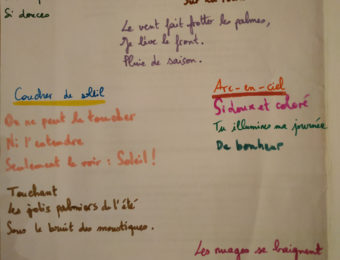 Si douces
Le vent fait frotter les palmes,
Je lève le front.
Pluie de saison.
Coucher de soleil
On ne peut le toucher
Ni l'entendre
Seulement le voir : Soleil !
Touchant
Les jolis palmiers de l'été
Sous le bruit des moustiques.
Arc-en-ciel
Si doux et coloré
Tu illumines ma journée
De bonheur
Les nuages se baignent